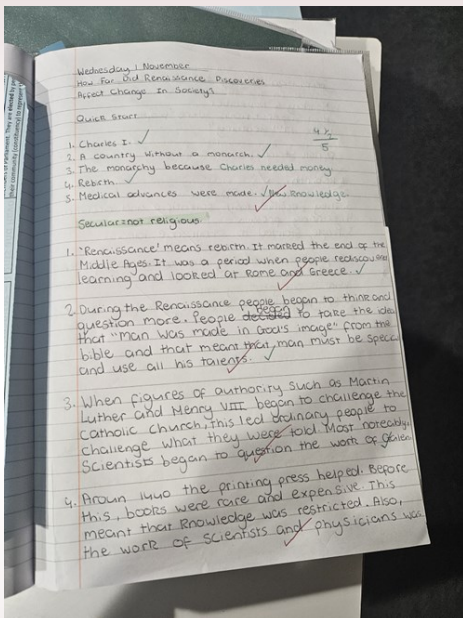 Wednesday 1 November
How Far Did Renaissance Discoveries
Affect Change In Society?
Quick Start
1. Charles I.
2. A country without a monarch.
3. The monarchy because Charles needed money.
4. Rebirth.
5. Medical advances were made. New knowledge.
4 1/2
5
Secular=not religious.
1. 'Renaissance' means rebirth. It marked the end of the
Middle Ages. It was a period when people
learning and looked at Rome and Greece.
2. During the Renaissance people began to think and
question more. People decided began to take the idea
that "man was made in God's image" from the
bible and that meant that man must be
and use all his talents.
3. When figures of authority such as Martin
Luther and Henry VIII began to challenge the
catholic church, this led ordinary people to
challenge what they were told. Most noteably,
Scientists began to question the work of Galen
4. Aroun 1440 the printing press helped. Before
this, books were rare and expensive. This
meant that knowledge was restricted. Also,
the work of scientists and physicians was
of Parliament. They are elected by
their community (constituency) to represent